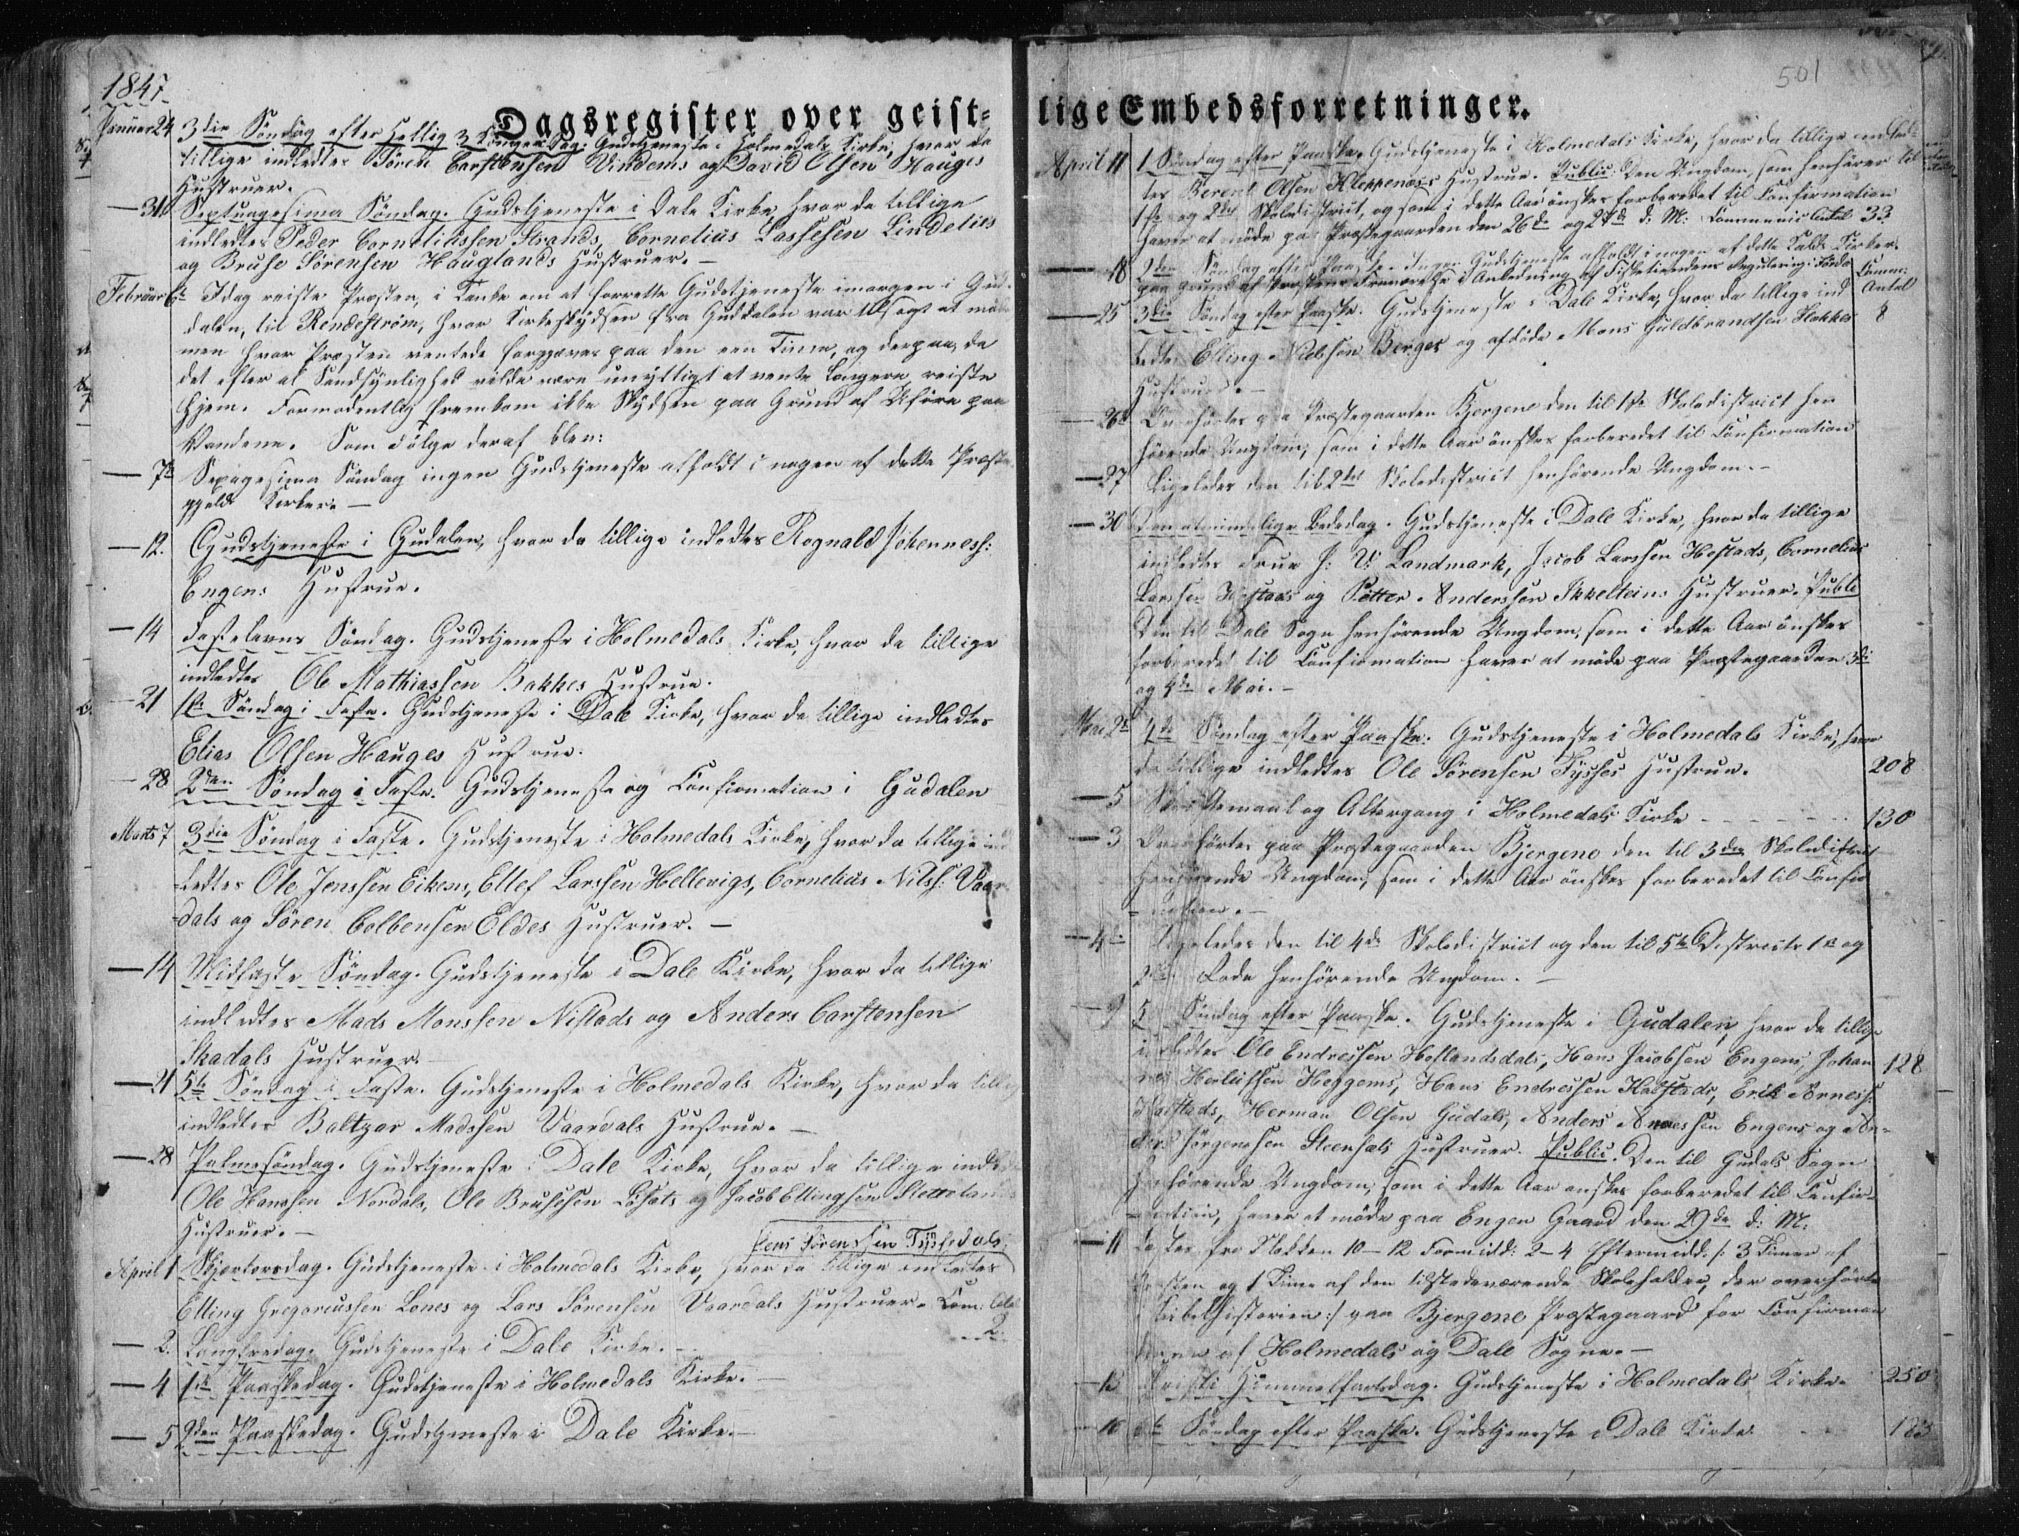 1847.
Dagsregister over geist-
Januar 24 3die Søndag efter Hellig 3 Konger Dag. Gudstjeneste i Holmedals Kirke, hvor da
tillige indledtes Søren Carstensen Vindems og David Olsen Hauges
Hustruer.
— 31 Septuagesima Søndag. Gudstjeneste i Dale Kirke, hvor da tillige
indledtes Peder Corneliussen Strands, Cornelius Lassesen Lindelies
og Bruse Sørensen Hauglands Hustruer. —
Februar 6te Idag reiste Præsten, i Tanke om at forrette Gudstjeneste imorgen i Gud-
dalen, til Rendestrøm, hvor Kirkeskydsen fra Guddalen var tilsagt at møde
men hvor Præsten ventede forgjæves paa den een Time, og derpaa, da
det efter al Sandsynlighed vilde være unyttigt at vente længere reiste
hjem. Formodentlig fremkom ikke Skydsen paa Grund af Uføre paa
Vandene. Som Følge deraf blev:
— 7de Sexagesima Søndag ingen Gudstjeneste afholdt i nogen af dette Præste-
gjelds Kirker. —
— 12. Gudstjeneste i Gudalen, hvor da tillige indledtes Rognald Johanness:
Engens Hustrue.
— 14 Fastelavns Søndag. Gudstjeneste i Holmedals Kirke, hvor da tillige
indledtes Ole Mathiassen Bakkes Hustrue.
— 21 1ste Søndag i Faste. Gudstjeneste i Dale Kirke, hvor da tillige indledtes
Elias Olsen Hauges Hustrue.
— 28 2den Søndag i Faste. Gudstjeneste og Confirmation i Gudalen
Marts 7 3die Søndag i Faste. Gudstjeneste i Holmedals Kirke, hvor da tillige ind
ledtes Ole Jenssen Eikens, Ellef Larssen Hellevigs, Cornelius Nilss: Vaar-
dals og Søren Colbensen Eldes Hustruer. —
— 14 Midfaste Søndag. Gudstjeneste i Dale Kirke, hvor da tillige
indledtes Mads Monssen Nistads og Anders Carstensen
Skadals Hustruer.
— 21 5te Søndag i Faste. Gudstjeneste i Holmedals Kirke, hvor da tillige
indledtes Baltzar Madssen Vaardals Hustrue. —
— 28 Palmesøndag. Gudstjeneste i Dale Kirke, hvor da tillige indledtes
Ole Hanssen Nordals, Ole Brussen og Jacob Ellingsen
Hustruer. —
Jens Sørensen Tyssedals
April 1 Skjærtorsdag. Gudstjeneste i Holmedals Kirke, hvor da tillige indledtes
Elling Gregoriussen Lones og Lars Sørensen Vaardals Hustruer. Com:
— 2. Langfredag. Gudstjeneste i Dale Kirke. —
— 4 1ste Paaskedag. Gudstjeneste i Holmedals Kirke. —
— 5 2den Paaskedag. Gudstjeneste i Dale Kirke. —
501
lige Embedsforretninger.
April 11 1 Søndag efter Paaske. Gudstjeneste i Holmedals Kirke, hvor da tillige indled-
tes Berent Olsen Kleppenæs's Hustrue. Public: Den Ungdom, som henhører til
1ste og 2det Skoledistrict, og som i dette Aar ønskes forberedet til Confirmation
haver at møde paa Præstegaarden den 26de og 27de d. M: Communic: Antal 33
— 18 2den Søndag efter Paaske. Ingen Gudstjeneste afholdt i nogen af dette Kalds Kirker
paa Grund af Præstens Fraværelse i Anledning af Regulering i Førde
Commun: Antal
— 25 3die Søndag efter Paaske. Gudstjeneste i Dale Kirke, hvor da tillige ind 8
ledtes Elling Nielsen Berges og afdøde Mons Guldbrandsen Flekkes
Hustruer. —
— 26 Overhørtes paa Præstegaarden Bjergene den til 1ste Skoledistrict hen
hørende Ungdom, som i dette Aar ønskes forberedet til Confirmation
— 27 Ligeledes den til 2det Skoledistrict henhørende Ungdom. —
— 30 Den almindelige Bededag. Gudstjeneste i Dale Kirke, hvor da tillige
indledtes Frue J: V: Landmark, Jacob Larssen Hestads, Cornelius
Larsen Hestads og Petter Anderssen Hustruer. Public
Den til Dale Sogn henhørende Ungdom, som i dette Aar ønskes
forberedet til Confirmation haver at møde paa Præstegaarden 3die
og 4de Mai. —
Mai 2den 4de Søndag efter Paaske. Gudstjeneste i Holmedals Kirke, hvor
da tillige indledtes Ole Sørensen Tysses Hustrue. 208
— 5 Skriftemaal og Altergang i Holmedals Kirke - - - - - 130
— 3 Overhørtes paa Præstegaarden Bjergene den til 3die Skoledistrict
henhørende Ungdom, som i dette Aar ønskes forberedet til Confir
mation. —
— 4de Ligeledes den til 4de Skoledistrict og den til 5te Districts 1ste og
2den Rode henhørende Ungdom. —
— 9 5te Søndag efter Paaske. Gudstjeneste i Gudalen, hvor da tillige
indledtes Ole Endressen Hellandsdals, Hans Jacobsen Engens, Johan 128
nes Herlufsen Heggems, Hans Endressen Hatstads, Erik Arness:
Hatstads, Herman Olsen Gudals, Anders Arnessen Engens og An-
ders Jørgenssen Hustruer. Public. Den til Gudals Sogn
henhørende Ungdom, som i dette Aar ønskes forberedet til Confir-
mation, haver at møde paa Engen Gaard den 29de d: M:
— 11 Klokken 10 — 12 Formidd: 2 — 4 Eftermidd: /: 3 Timer af
Præsten og 1 Time af den tilstedeværende Skoleholder, der overhørte
Bibelhistorien :/ paa Bjergene Præstegaard for Confirman
derne af Holmedals og Dale Sogne. —
— 13 Christi Himmelfartsdag. Gudstjeneste i Holmedals Kirke. 250
— 16 6te Søndag efter Paaske. Gudstjeneste i Dale Kirke. 123